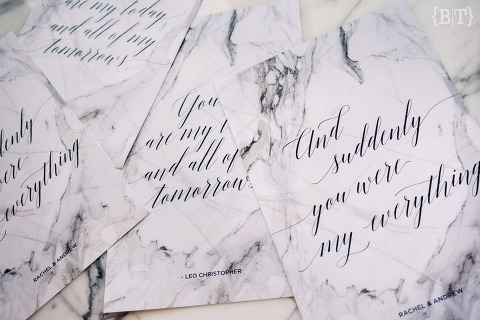 {BT}
are my today
and all of my
tomorrows
You
are my t
and all of
tomorrows
- LEO CHRISTOPHER
And
suddenly
you were
my everything
RACHEL & ANDREW
denly
ere
everything
RACHEL & ANDREW